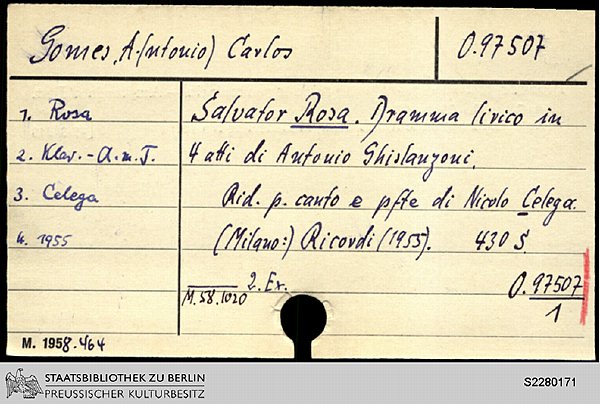 Gomes, A.(ntonio) Carlos
O.97507
1. Rosa
2. Klav.-A.m.T.
3. Celega
4. 1955
Salvator Rosa. Dramma lirico in
4 atti di Antonio Ghislanzoni.
Rid. p. canto e pfte di Nicolo Celega.
(Milano:) Ricordi (1955). 430 S.
2. Ex.
M.58.1020
O.97507
1
M. 1958.464
STAATSBIBLIOTHEK ZU BERLIN
PREUSSISCHER KULTURBESITZ
S2280171